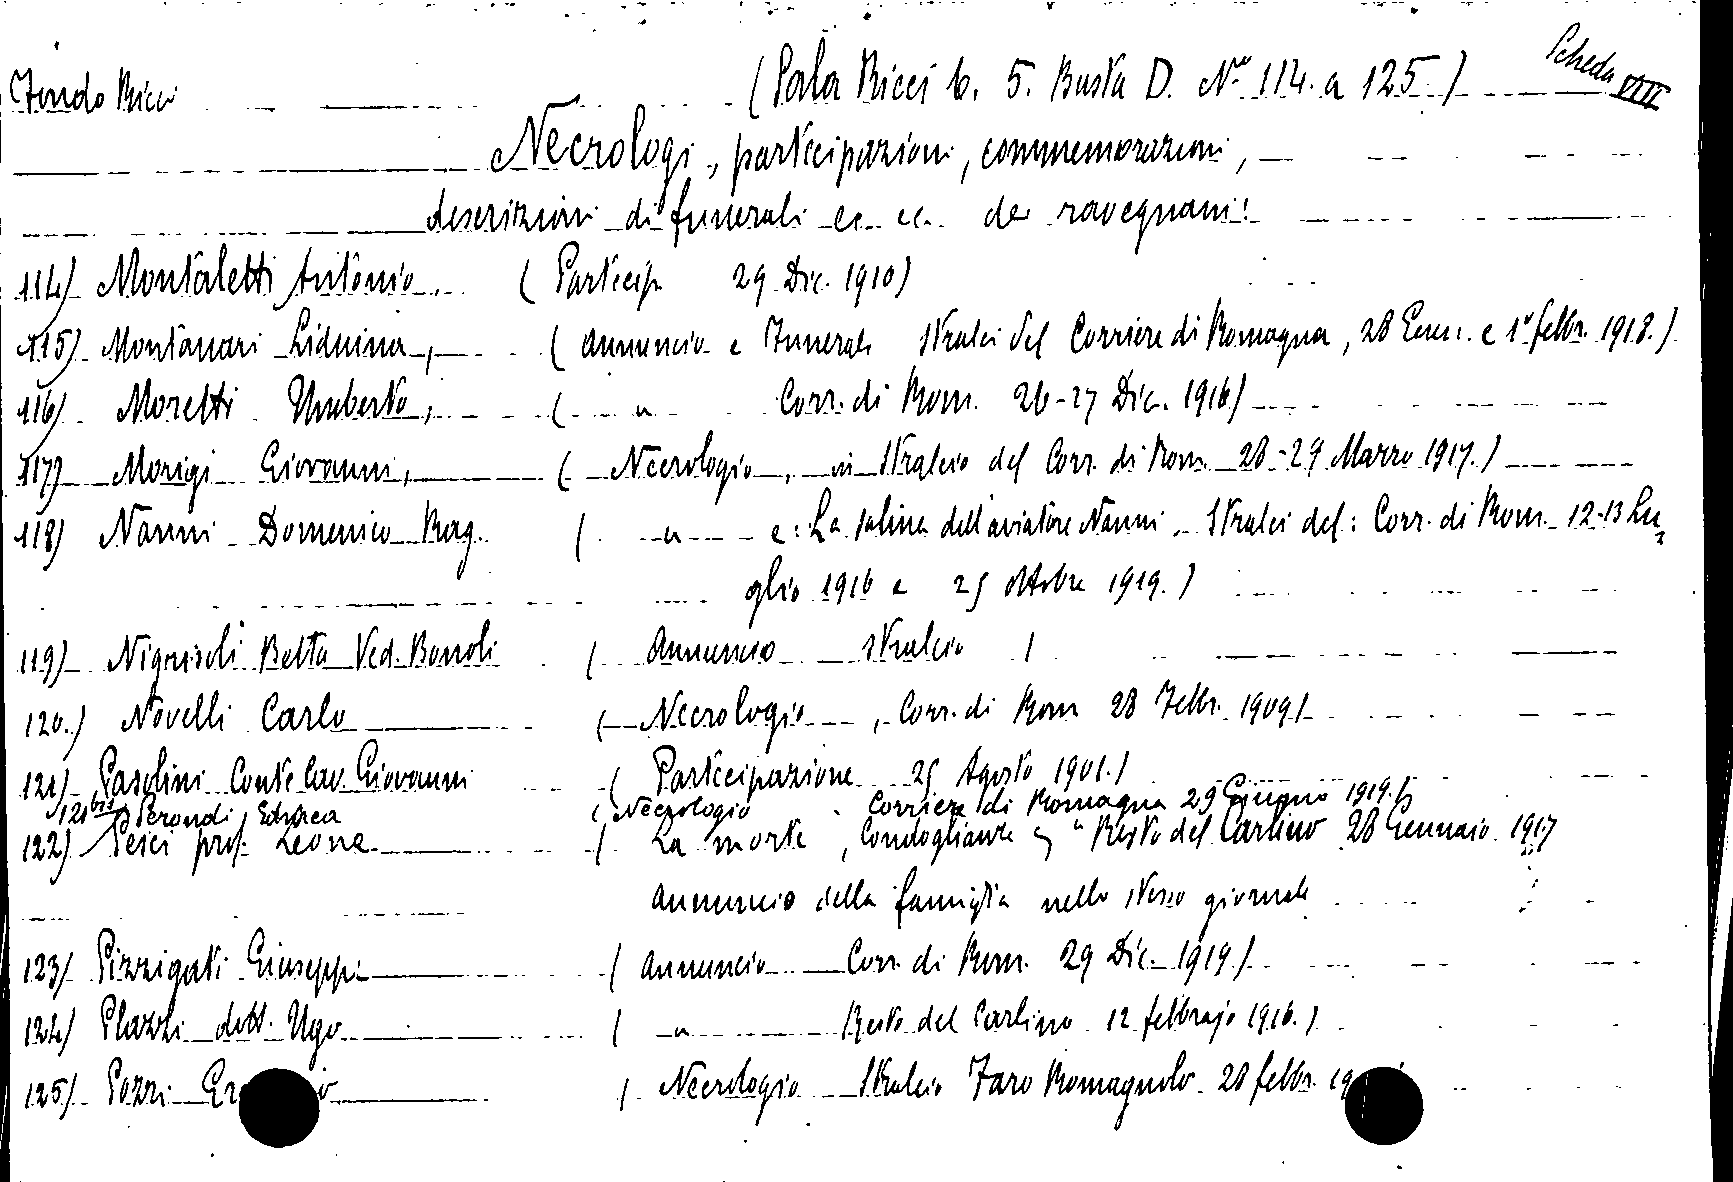 Fondo Ricci (Sala Ricci b. 5. Busta D. Nº 114. a 125.) Scheda VIII
Necrologi, partecipazioni, commemorazioni,
descrizioni di funerali ec. ec. dei ravegnani:
114) Montaletti Antonio, (Partecip. 29 Dic. 1910)
115) Montanari Liduina, (Annuncio e Funerali Stralci del Corriere di Romagna, 28 Genn. e 1º febbr. 1918.)
116) Moretti Umberto, ( " Corr. di Rom. 26-27 Dic. 1916)
117) Morigi Giovanni, (Necrologio, in Stralcio del Corr. di Rom. 28-29 Marzo 1917.)
118) Nanni Domenico Rag. ( " e: La salma dell'aviatore Nanni. Stralci del: Corr. di Rom. 12-13 Lu=
glio 1916 e 25 ottobre 1919.)
119) Nigrisoli Betta Ved. Bonoli (Annuncio stralcio )
120.) Novelli Carlo (Necrologio, Corr. di Rom 28 Febbr. 1909)
121) Pasolini Conte Cav. Giovanni (Partecipazione 25 Agosto 1901.)
121 bis) Perondi Edvrea (Necrologio Corriere di Romagna 29 Giugno 1919.)
122) Pesci prof. Leone ( La morte, Condoglianze " Resto del Carlino 28 Gennaio 1917
Annuncio della famiglia nello stesso giornale
123) Pizzigati Giuseppe (Annuncio Corr. di Rom. 29 Dic. 1919.)
124) Plazzi dott. Ugo ( " Resto del Carlino 12 febbrajo 1916.)
125) Pozzi ( Necrologio Stralcio Faro Romagnolo 28 febbr. 19